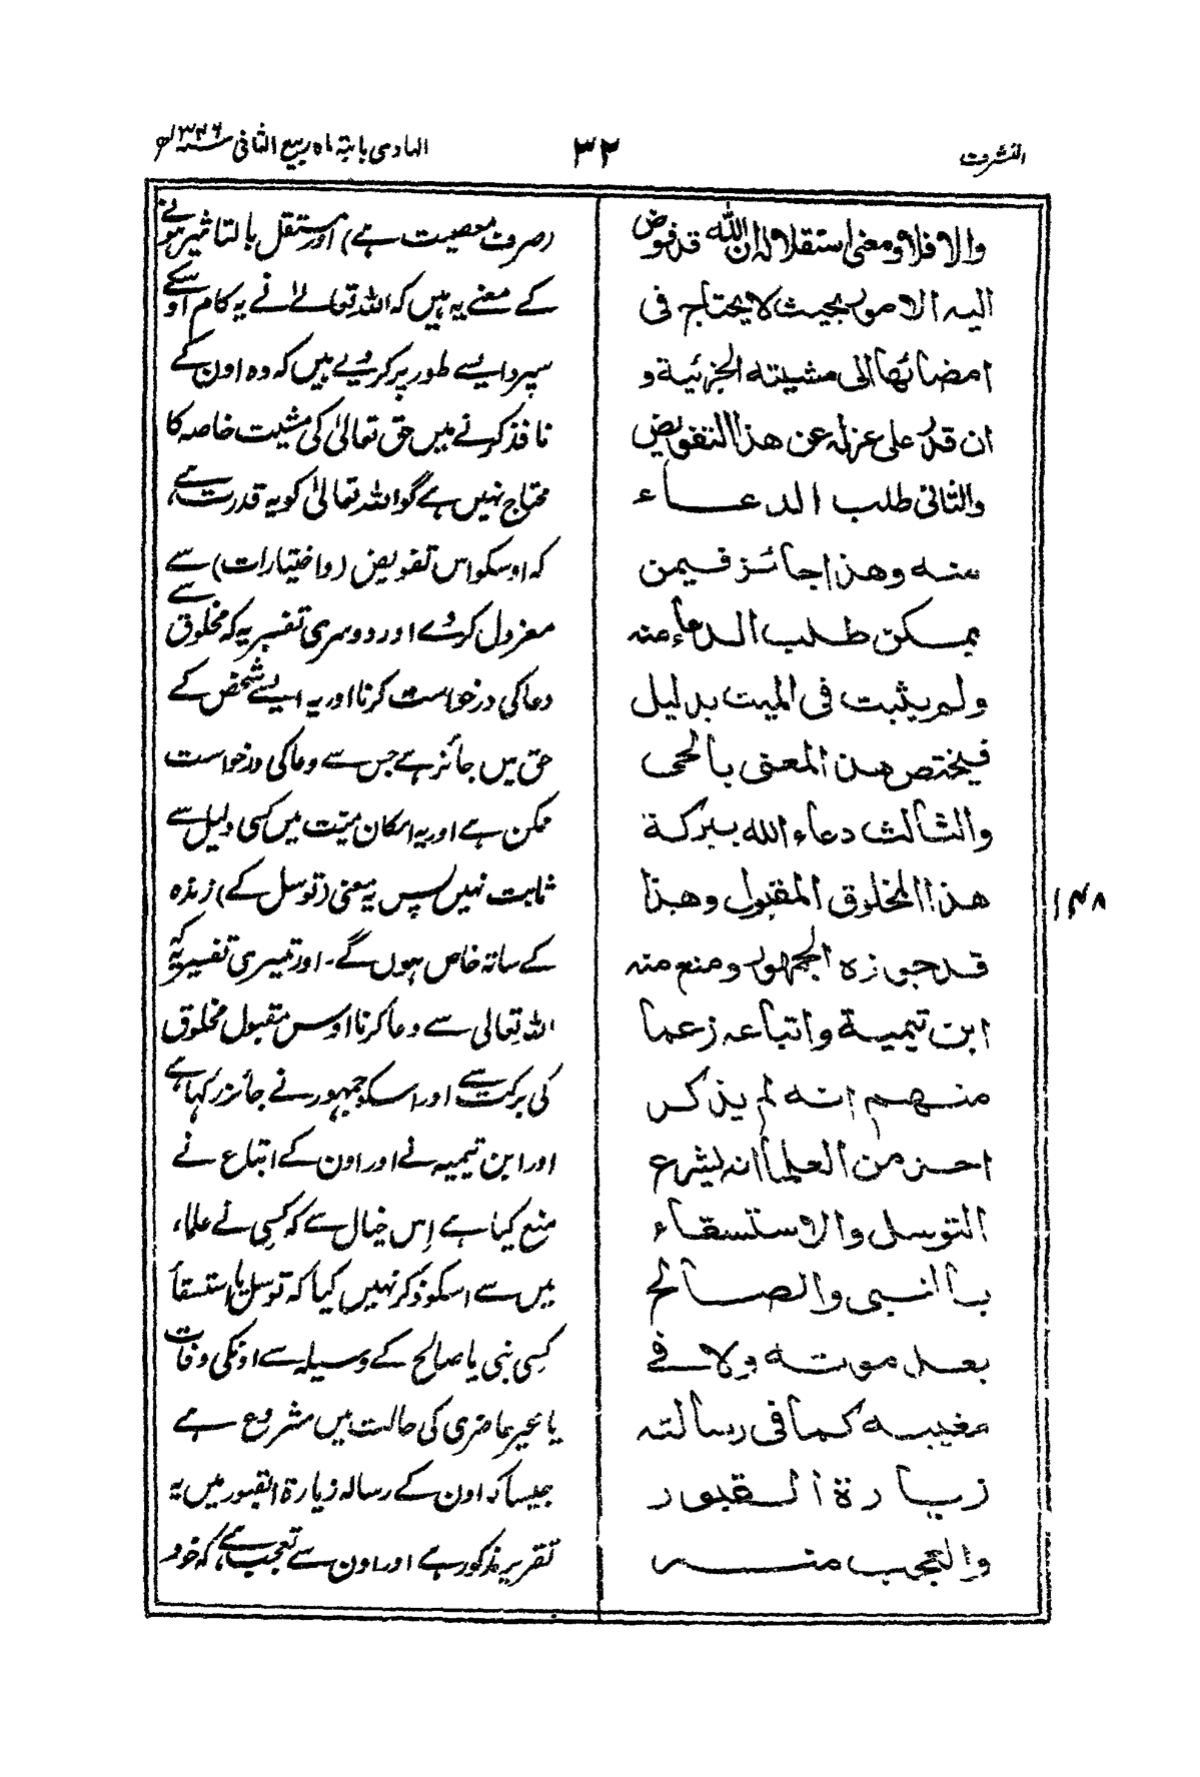 التشرف
۳۲
الہادی بابتہ ماہ ربیع الثانی سنہ ۱۳۴۶ھ
والا فلا ومعنی استقلالہ ان اللہ قد فوض
الیہ الامور بحیث لا یحتاج فی
امضائہا الی مشیتہ الجزئیة و
ان قدر علی عزلہ عن ھذا التفویض
والثانی طلب الدعاء
منہ وھذا جائز فیمن
یمکن طلب الدعاء منہ
ولم یثبت فی المیت بدلیل
فیختص ھذ المعنی بالحی
والثالث دعاء اللہ ببرکة
ھذا المخلوق المقبول وھذا
قد جوزہ الجمہور ومنع منہ
ابن تیمیة واتباعہ زعما
منہم انہ لم یذکر
احد من العلما انہ یشرع
التوسل والاستسقاء
بالنبی والصالح
بعد موتہ ولا فی
مغیبہ کما فی رسالتہ
زیارة القبور
والتعجب منہ
(صرف معصیت ہے) اور مستقل بالتاثیر ہونے
کے معنے یہ ہیں کہ اللہ تعالےٰ نے یہ کام اوسکے
سپرد ایسے طور پر کر دیے ہیں کہ وہ اون کے
نافذ کرنے میں حق تعالیٰ کی مشیت خاصہ کا
محتاج نہیں ہے گو اللہ تعالیٰ کو یہ قدرت ہے،
کہ اوسکو اس تفویض (و اختیارات) سے
معزول کر دے اور دوسری تفسیر یہ کہ مخلوق سے
دعا کی درخواست کرنا اور یہ ایسے شخص کے
حق میں جائز ہے جس سے دعا کی درخواست
ممکن ہے اور یہ امکان میّت میں کسی دلیل سے
ثابت نہیں پس یہ معنی (توسل کے) زندہ
کے ساتہ خاص ہوں گے۔ اور تیسری تفسیر یہ کہ
اللہ تعالی سے دعا کرنا اوس مقبول مخلوق
کی برکت سے اور اسکو جمہور نے جائز رکہا ہے
اور ابن تیمیہ نے اور اون کے اتباع نے
منع کیا ہے اِس خیال سے کہ کسِی نے علماء
میں سے اسکو ذکر نہیں کیا کہ توسل یا استسقا
کسِی نبی یا صالح کے وسیلہ سے اونکی وفات
یا غیر حاضری کی حالت میں مشروع ہے
جیسا کہ اون کے رسالہ زیارة القبور میں یہ
تقریر مذکور ہے اور اون سے تعجب ہے، کہ خود
۱۴۸